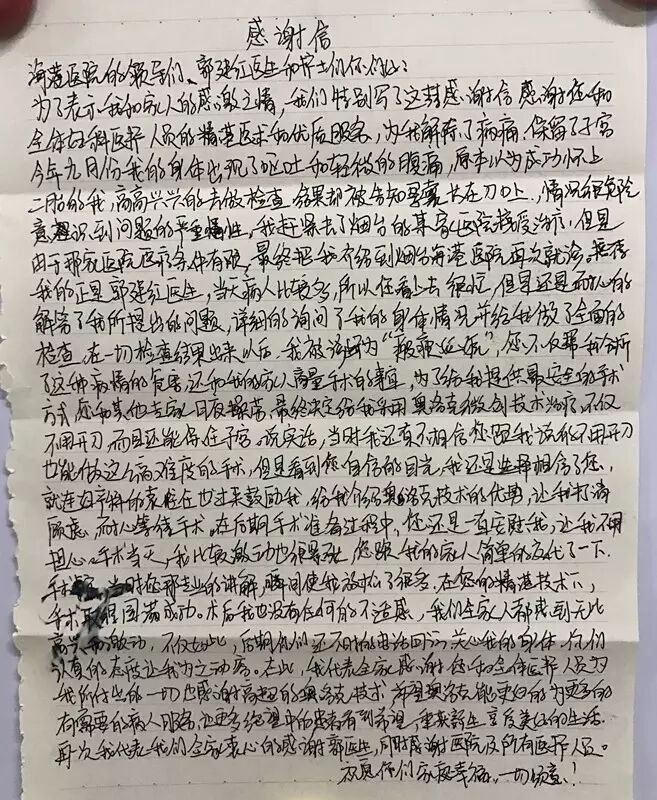 感谢信
海港医院的领导们、郭建红医生和护士们你们好:
为了表示我和家人的感激之情,我们特别写了这封感谢信 感谢您和
全体妇科医护人员的精湛医术和优质服务,为我解除了病痛.保留了子宫
今年九月份我的身体出现了呕吐和轻微的腹痛,原本以为成功怀上
二胎的我,高高兴兴的去做检查 结果却被告知孕囊长在刀口上,情况很危险
意识到问题的严重性,我赶紧去了烟台的某家医院接受治疗,但是
由于那家医院医疗条件有限,最终把我介绍到烟台海港医院再次就诊.接待
我的正是郭建红医生,当天病人比较多,所以您看上去很忙,但是还是耐心的
解答了我所提出的问题,详细的询问了我的身体情况并给我做了全面的
检查.在一切检查结果出来以后.我被诊断为“瘢痕妊娠”,您不仅帮我分析
了这种病情的危害还和我的家人商量手术的事宜,为了给我提供最安全的手术
方式 您和其他专家日夜操劳,最终决定给我采用奥洛克微创技术治疗.不仅
不用开刀,而且还能保住子宫.说实话,当时我还真不相信您跟我说的不用开刀
也能做这么高难度的手术,但是看到您自信的目光,我还是选择相信了您,
就连妇产科的袁主任也过来鼓励我,给我介绍奥洛克技术的优势,让我打消
顾虑,耐心等待手术.在后期手术准备过程中,您还是一直安慰我,让我不用
担心.手术当天,我比较激动也很害怕 您跟我的家人简单的交代了一下.
当时您那专业的讲解,瞬间使我放松了很多,在您的精湛技术下,
手术取得圆满成功.术后我也没有任何的不适感,我们全家人都感到无比
高兴和激动,不仅如此,后期你们还不时的电话回访关心我的身体.你们
认真的态度让我为之动容.在此,我代表全家感谢您和全体医护人员为
我所付出的一切也感谢高超的奥洛克技术 希望奥洛克能更好的为更多的
有需要的病人服务,让更多绝望中的患者看到希望,重获新生享受美好的生活.
再次我代表我们全家衷心的感谢郭医生,同时感谢医院及所有医护人员。
祝愿你们家庭幸福,一切顺意!